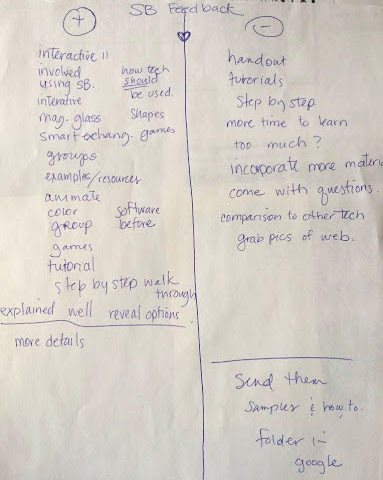 SB Feedback
+
interactive 11
involved
using SB.
how tech
should
be used.
interative
mag. glass shapes
smart exchang. games
groups
examples/resources
animate
color software
group before
games
tutorial
step by step walk
through
explained well reveal options
more details
-
handout
tutorials
step by step
more time to learn
too much?
incorporate more materia
come with questions.
comparison to other tech
grab pics of web.
Send them
samples & how to.
folder in
google